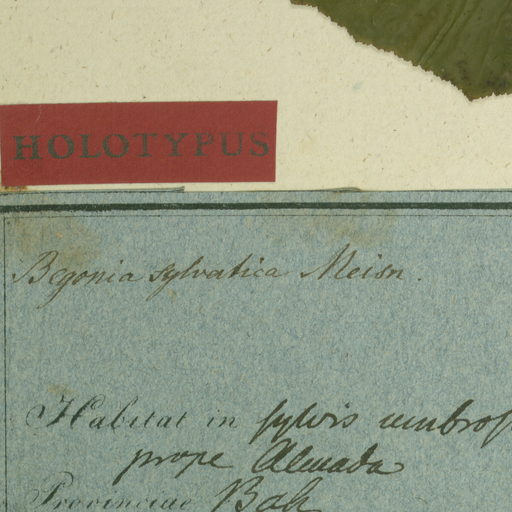 HOLOTYPUS
Begonia sylvatica Meisn.
Habitat in sylvis umbros
prope Almada
Provinciae Bah